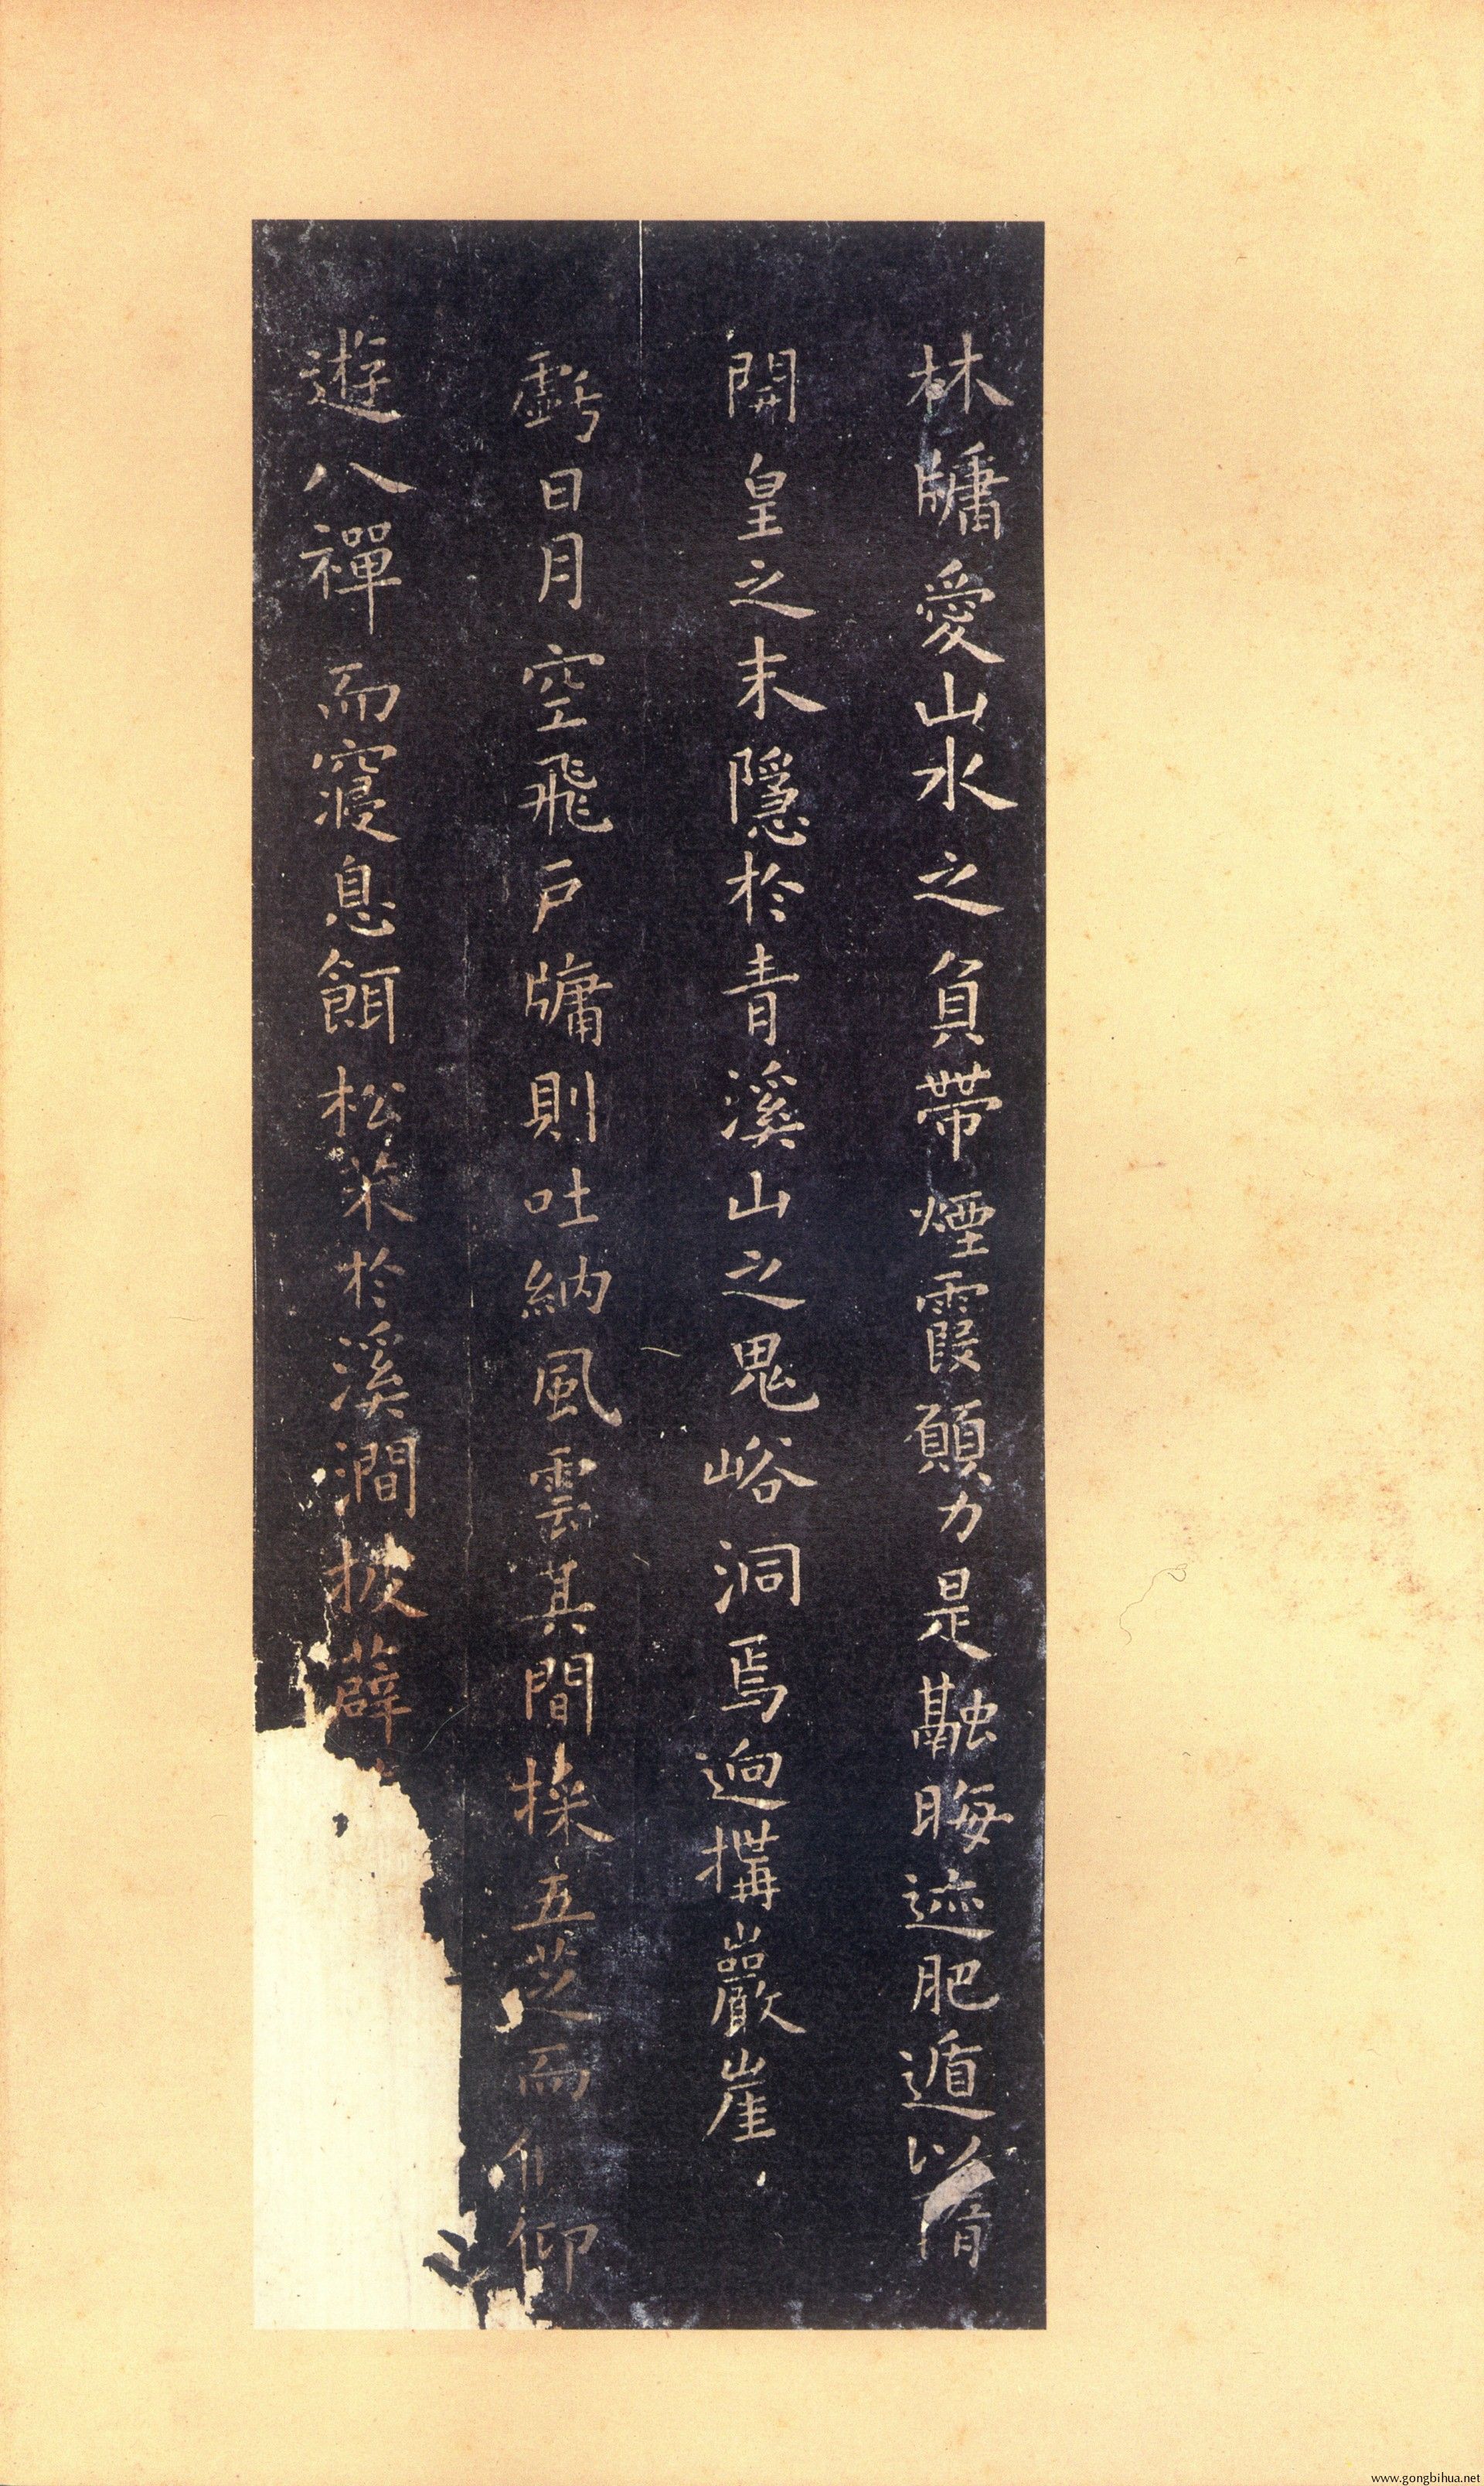 林牗愛山水之負帶煙霞願力是勘晦迹肥遁以隋
開皇之末隱於青溪山之鬼峪洞焉迥搆巖崖
虧日月空飛戶牗則吐納風雲其間採五芝而仰
遊八禪而寢息餌松菜於溪澗披薜
www.gongbihua.net